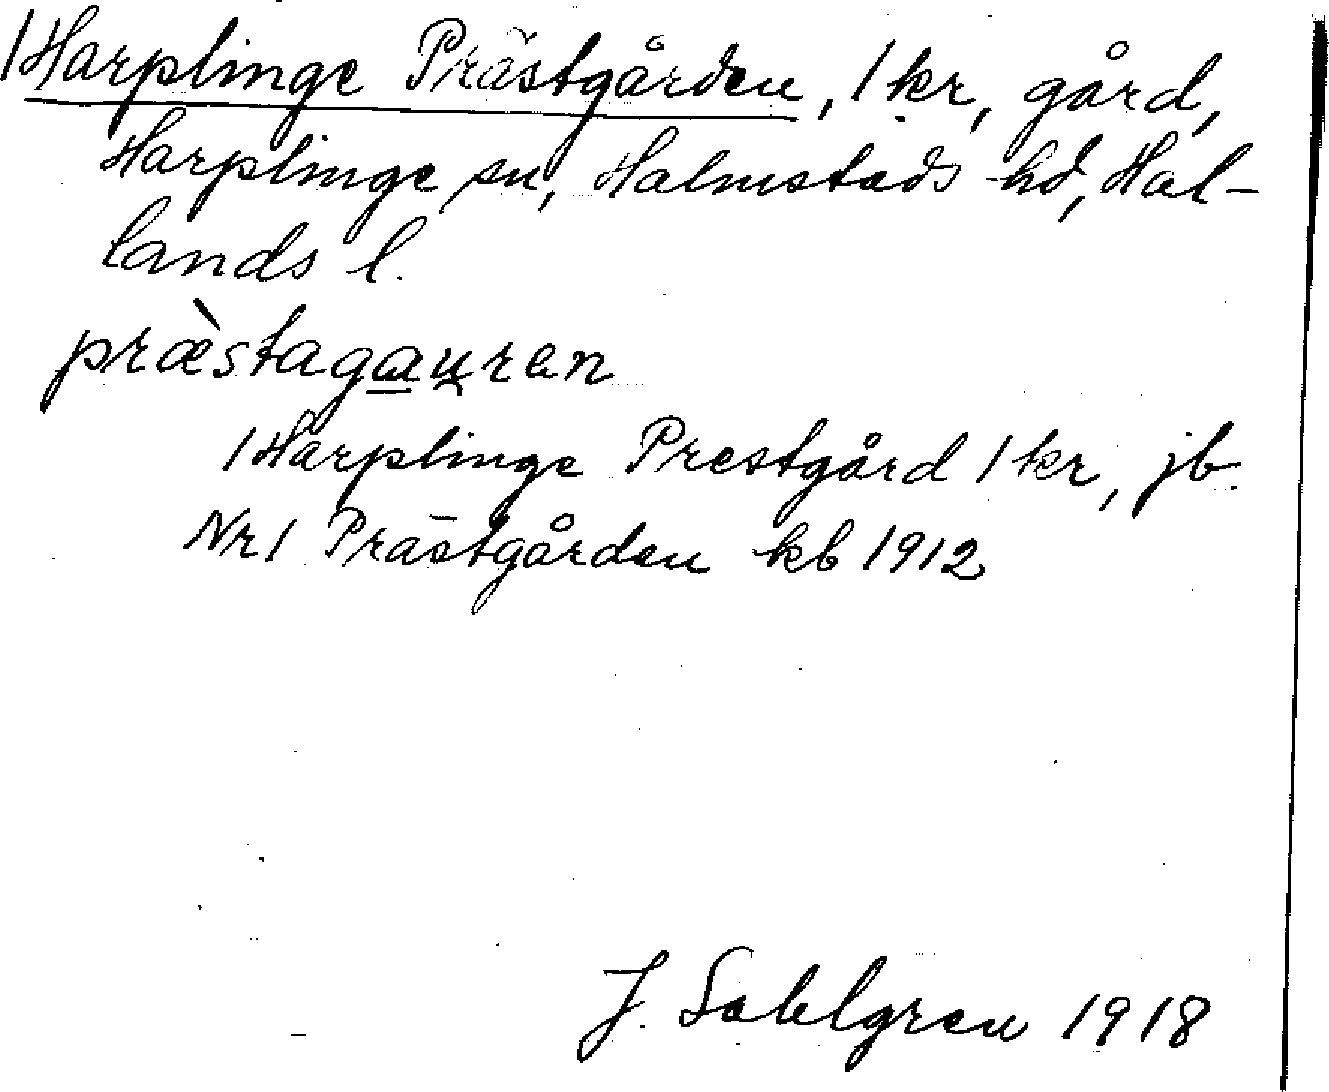 1 Harplinge Prästgården, 1 kr, gård,
Harplinge sn, Halmstads hd, Hal-
lands l.
præ̀stagau̯ren
1 Harplinge Prestgård 1 kr, jb.
Nr 1 Prästgården kb 1912
J. Sahlgren 1918